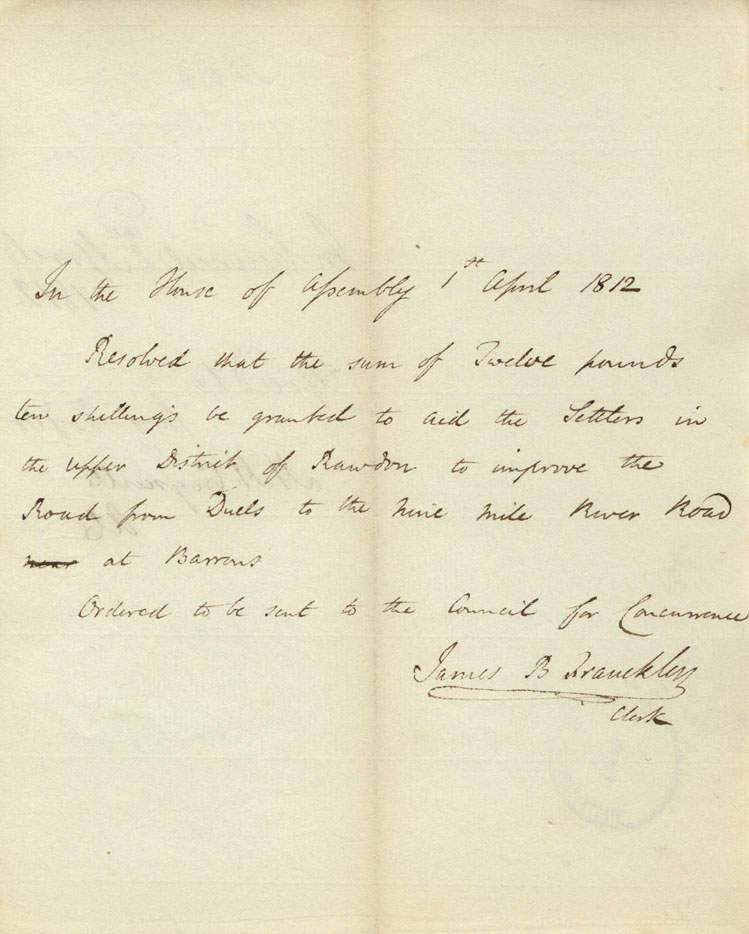 In the House of Assembly 1st April 1812
Resolved that the sum of Twelve pounds
ten shillings be granted to aid the Settlers in
the upper District of Rawdon to improve the
Road from Duels to the Nine Mile River Road
near at Barrons
Ordered to be sent to the Council for Concurrence
James B Franckley
Clerk